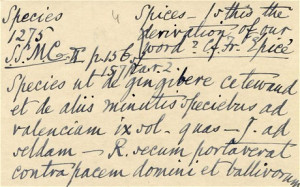 Species 4 Spices – Is this the
1275 derivation of our
S.S.M.C. II p. 156 word? Cf. Fr. Epice
157 Var. 2.
Species ut de gingibere cetewand
et de aliis minutis speciebus ad
valenciam ix sol – quas – J. ad
seldam – R. secum portaverat
contra pacem domini et ballivorum